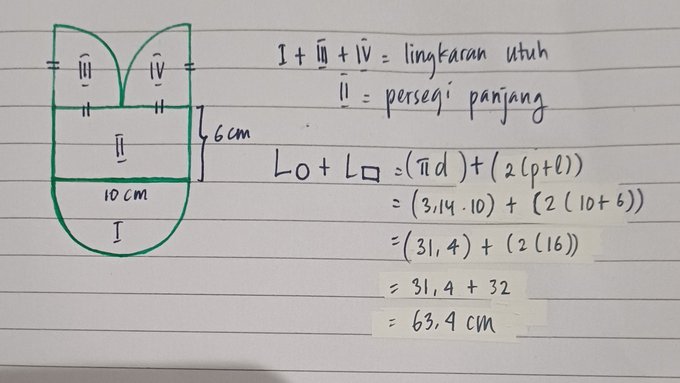 III IV
II
6 cm
10 cm
I
I + III + IV = lingkaran utuh
II = persegi panjang
L○ + L▭ = (πd) + (2(p+l))
= (3,14 . 10) + (2(10+6))
= (31,4) + (2(16))
= 31,4 + 32
= 63,4 cm